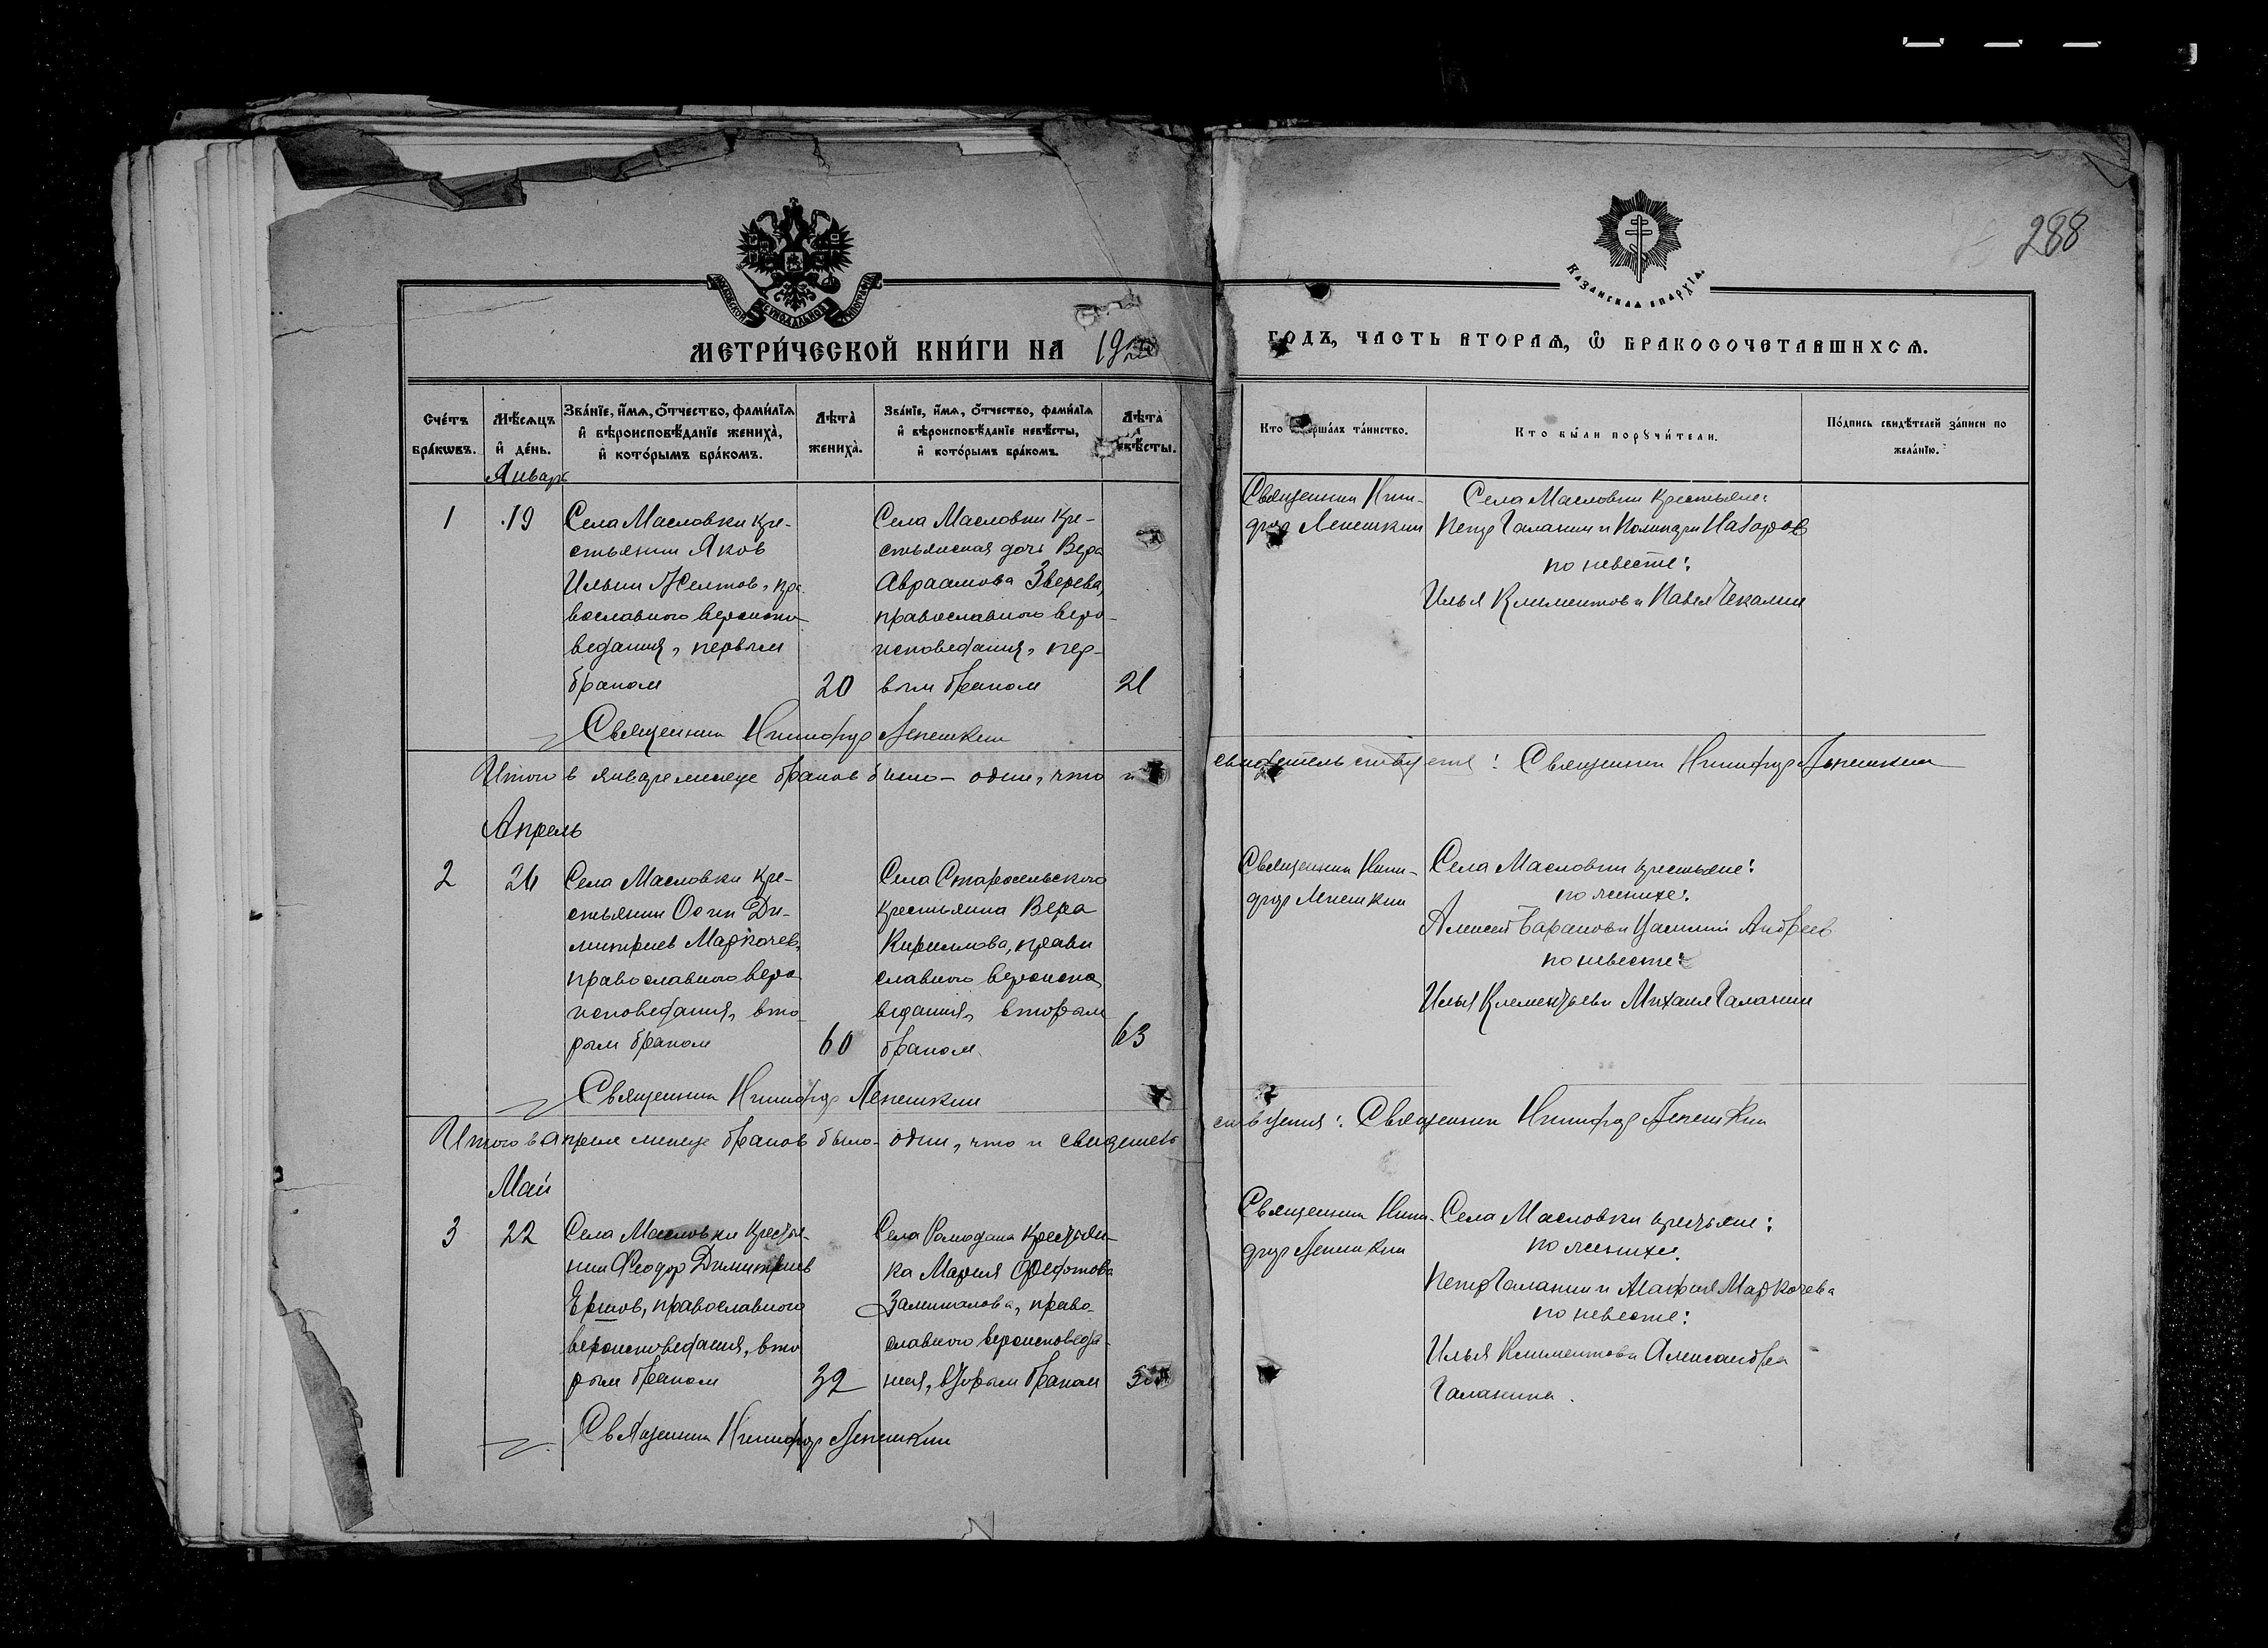 288
МОСКОВСКОЙ СѴНОДАЛЬНОЙ ТИПОГРАФІИ
КАЗАНСКАЯ ЕПАРХІЯ.
МЕТРИ́ЧЕСКОЙ КНИ́ГИ НА 19
ГОДЪ, ЧАСТЬ ВТОРАѦ, Ѿ БРАКОСОЧЕТАВШИХСѦ.
Сче́тъ бра́кѡвъ.
Мѣ́сѧцъ и҆ де́нь.
Зва́нїе, и҆́мѧ, ѻ҆́тчество, фами́лїѧ
и҆ вѣроисповѣ́данїе жениха̀,
и҆ кото́рымъ бра́комъ.
Лѣ́та̀ жениха̀.
Зва́нїе, и҆́мѧ, ѻ҆́тчество, фами́лїѧ
и҆ вѣроисповѣ́данїе невѣ́сты,
и҆ кото́рымъ бра́комъ.
Лѣ́та̀
Кто таи́нство.
Кто бы́ли порꙋчи́тели.
По́дпись свидѣ́телей за́писи по
жела́нїю.
Январь
1
19
Села Масловки кре-
стьянин Яков
Ильин Желтов, пра
вославного вероиспо-
ведания, первым
браком
20
Села Масловки кре-
стьянская дочь Вера
Авраамова Зверева,
православного веро-
исповедания, пер-
вым браком
21
Священник Ники-
фор Лепешкин
Села Масловки крестьяне:
Петр Галанин и Назаров
по невесте:
Илья Климентов и Павел Чекалин
Священник Никифор Лепешкин
Итого в январе месяце браков было - один, что и
свидетельствуется: Священник Никифор Лепешкин
Апрель
2
Села Масловки кре-
стьянин Осип Ди-
митриев Маркачев,
православного веро
исповедания, вто-
рым браком
60
Села Старосельского
крестьянка Вера
Кириллова, право
славного вероиспо
ведания, вторым
браком
63
Священник Ники-
фор Лепешкин
Села Масловки крестьяне:
по женихе:
Алексей Баранов и Андреев
по невесте:
Илья Клементьев и Михаил Галанин
Священник Никифор Лепешкин
Итого в апреле месяце браков было - один, что и свидетель
ствуется: Священник Никифор Лепешкин
Май
3
22
Села Масловки крестья-
нин Феодор Димитриев
Ершов, православного
вероисповедания, вто
рым браком
32
Села Ромодана крестьян-
ка Мария
право-
славного вероисповеда-
ния, вторым браком
Священник Ники-
фор Лепешкин
Села Масловки крестьяне:
по женихе:
Петр Галанин и Маркачева
по невесте:
Илья Климентов и Александра
Галанина.
Священник Никифор Лепешкин